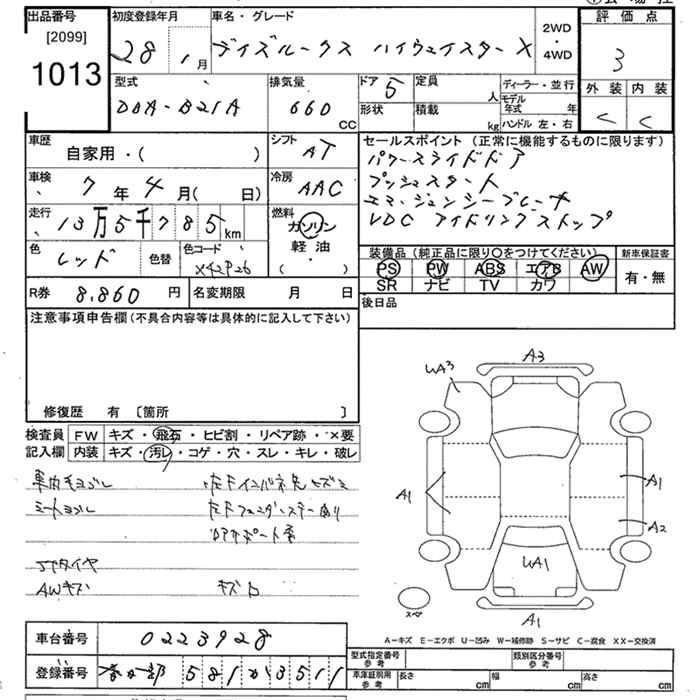 出品番号
[2099]
1013
初度登録年月
28年1月
車名・グレード
デイズルークス ハイウェイスターX
2WD
・
4WD
評価点
3
外装 内装
C C
型式
DBA-B21A
排気量
660
CC
ドア 5
形状
定員
人
積載
kg
ディーラー・並行
モデル年式 年
ハンドル 左・右
車歴
自家用・( )
シフト
AT
車検
7年4月( 日)
冷房
AAC
走行
13万5千785km
燃料
ガソリン
軽油・
( )
色
レッド
色替
色コード
R券
8,860円
名変期限 月 日
セールスポイント(正常に機能するものに限ります)
パワースライドドア
プッシュスタート
エマージェンシーブレーキ
VDC アイドリングストップ
装備品(純正品に限り〇をつけてください)
PS PW ABS エアB AW
SR ナビ TV カワ
新車保証書
有・無
後日品
注意事項申告欄(不具合内容等は具体的に記入して下さい)
修復歴 有 〔箇所 〕
検査員記入欄
FW キズ・飛石・ヒビ割・リペア跡・×要
内装 キズ・汚レ・コゲ・穴・スレ・キレ・破レ
車内ヨゴレ
シートヨゴレ
STタイヤ
AWキズ
A3
A1
A1
A2
A1
スペア
A-キズ E-エクボ U-凹み W-補修跡 S-サビ C-腐食 XX-交換済
車台番号
0223928
登録番号
春日部 581 か 3511
型式指定番号
参考
類別区分番号
参考
車庫証明用
参考
長さ cm
幅 cm
高さ cm